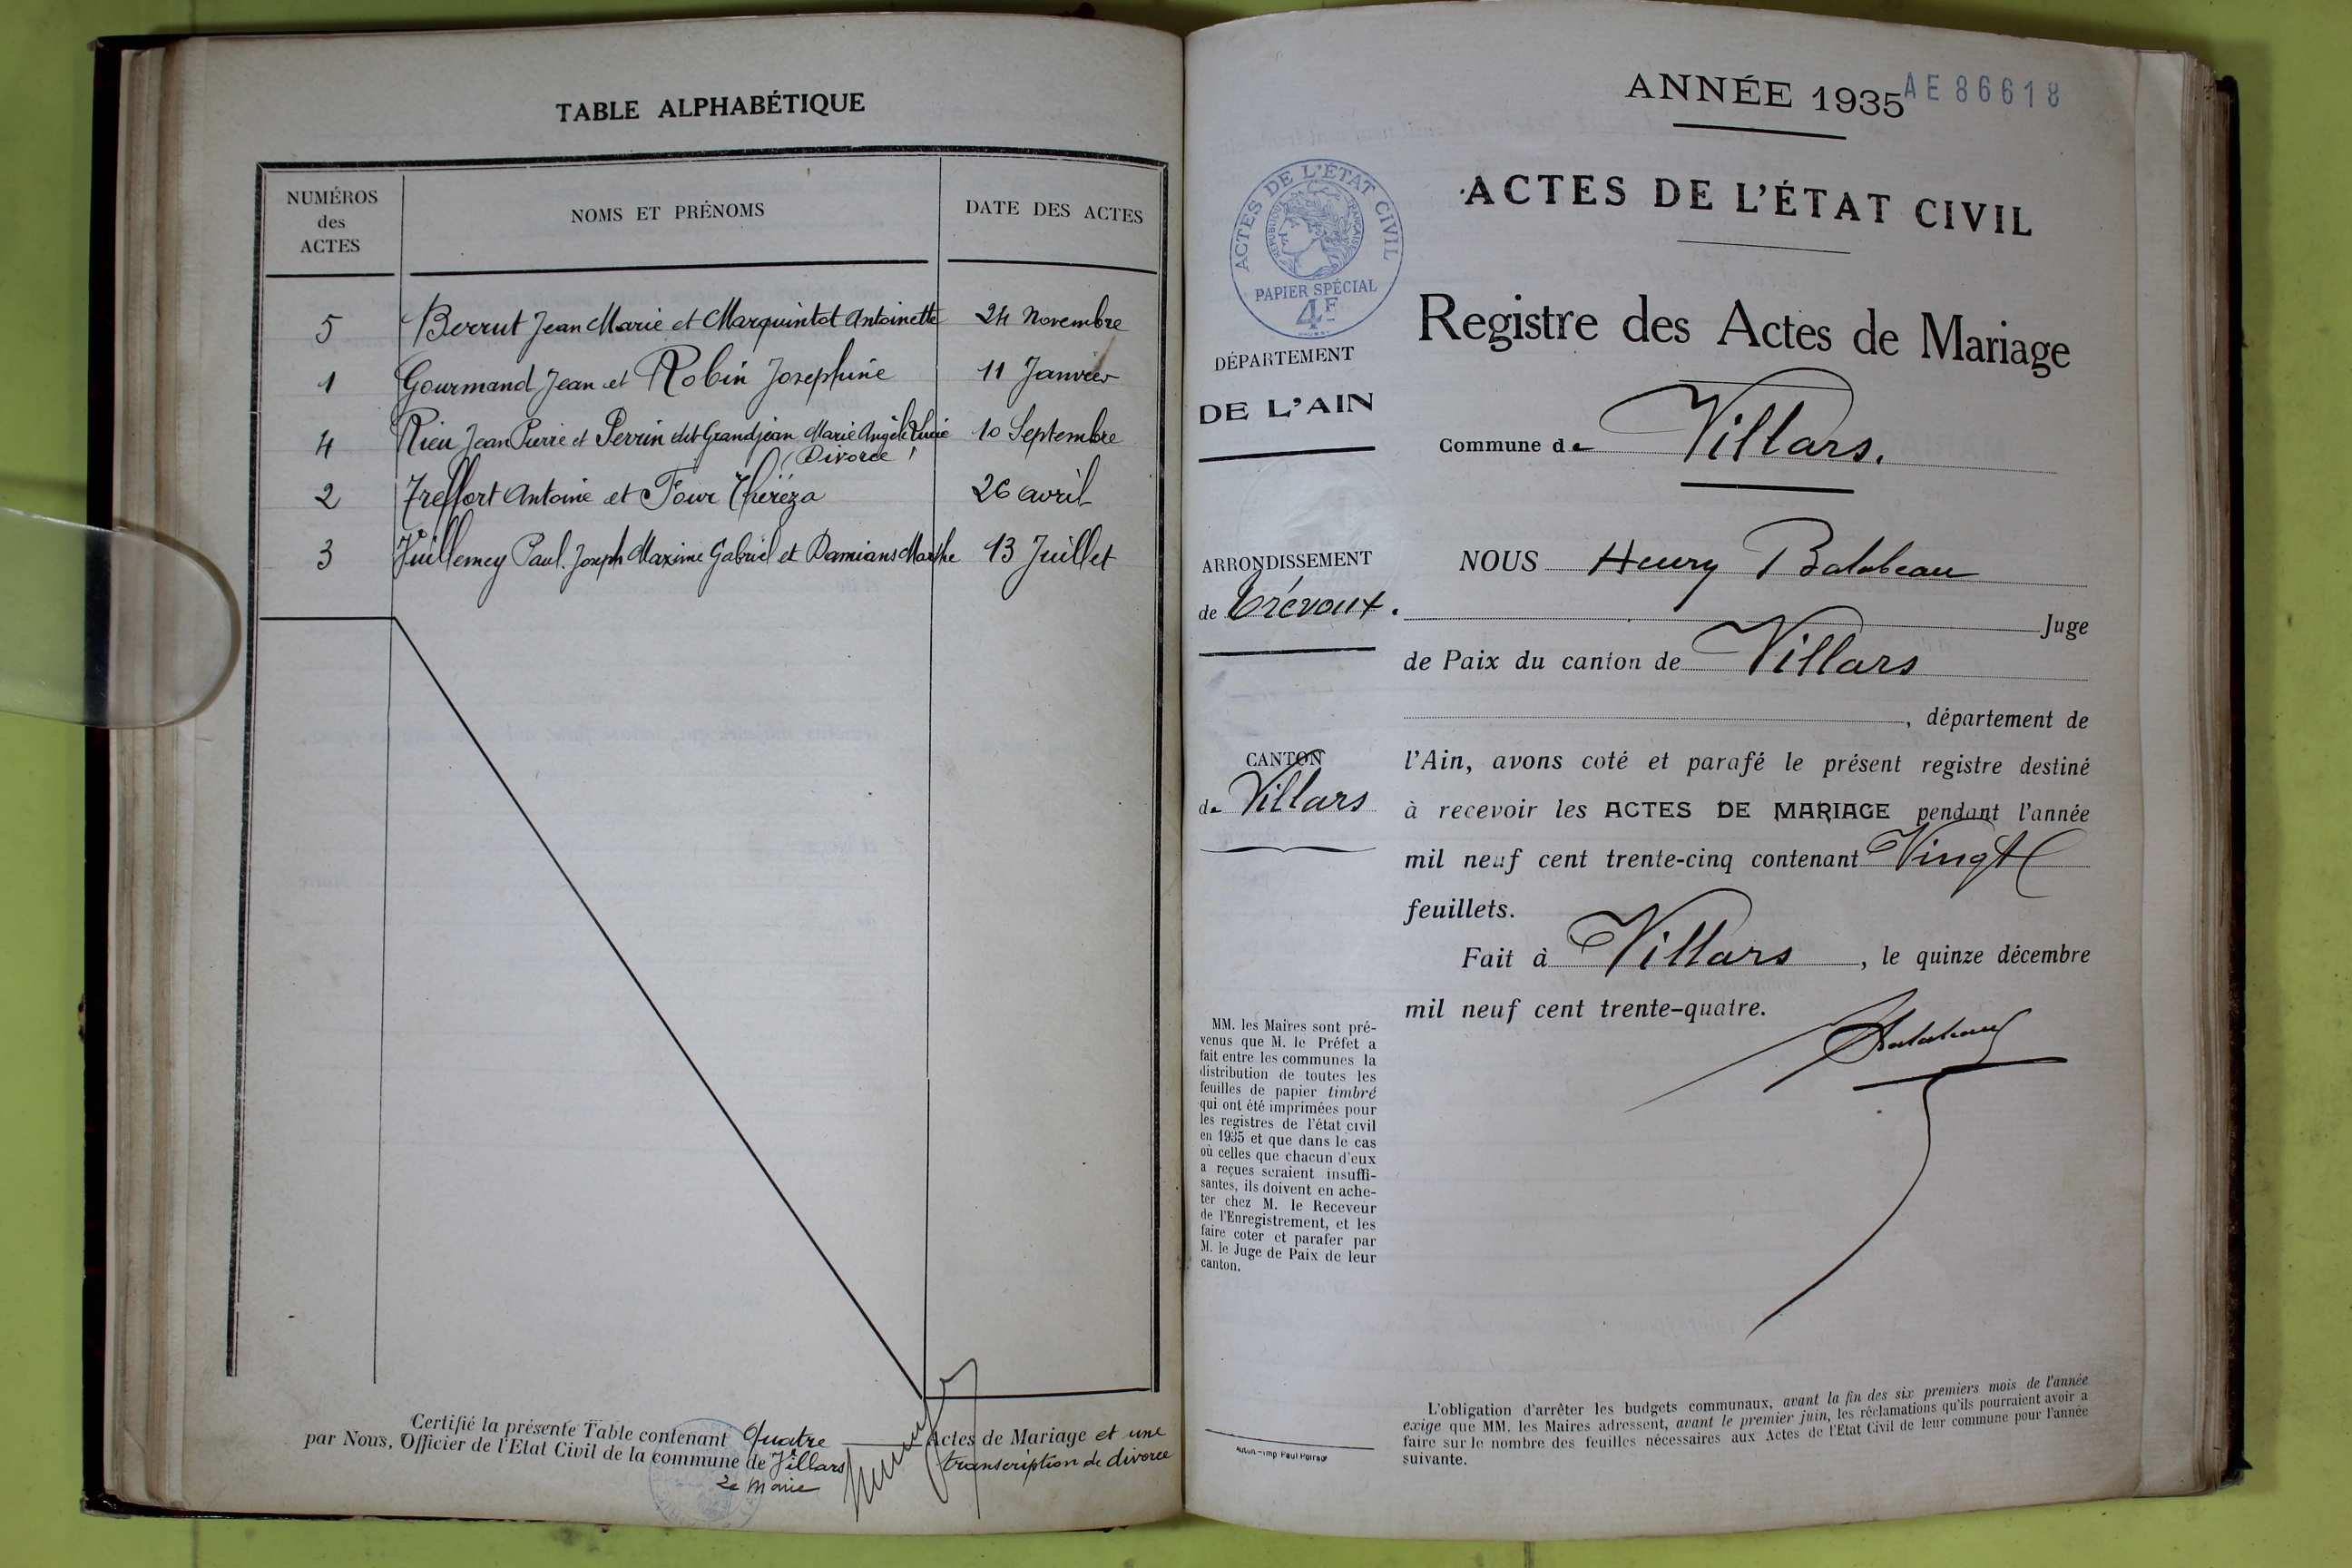 TABLE ALPHABÉTIQUE
NUMÉROS
des
ACTES
NOMS ET PRÉNOMS
DATE DES ACTES
5 Berrut Jean Marie et Marquintot Antoinette 24 Novembre
1 Gourmand Jean et Robin Josephine 11 Janvier
4 Rieu Jean Pierre et Perrin dit Grandjean Marie Angèle Lucie 10 Septembre
(Divorce)
2 Treffort Antoine et Four Théréza 26 avril
3 Vuillemey Paul Joseph Maxime Gabriel et Damians Marthe 13 Juillet
Certifié la présente Table contenant Quatre Actes de Mariage et une
par Nous, Officier de l'Etat Civil de la commune de Villars transcription de divorce
Le Maire
ANNÉE 1935
AE 86618
ACTES DE L'ÉTAT CIVIL
RÉPUBLIQUE FRANÇAISE
PAPIER SPÉCIAL
4F
ACTES DE L'ÉTAT CIVIL
Registre des Actes de Mariage
DÉPARTEMENT
DE L'AIN
Commune de Villars.
ARRONDISSEMENT
de Trévoux.
CANTON
de Villars
NOUS Henry Balabeau
Juge
de Paix du canton de Villars
, département de
l'Ain, avons coté et parafé le présent registre destiné
à recevoir les ACTES DE MARIAGE pendant l'année
mil neuf cent trente-cinq contenant Vingt
feuillets.
Fait à Villars, le quinze décembre
mil neuf cent trente-quatre.
Balabeau
MM. les Maires sont pré-
venus que M. le Préfet a
fait entre les communes la
distribution de toutes les
feuilles de papier timbré
qui ont été imprimées pour
les registres de l'état civil
en 1935 et que dans le cas
où celles que chacun d'eux
a reçues seraient insuffi-
santes, ils doivent en ache-
ter chez M. le Receveur
de l'Enregistrement, et les
faire coter et parafer par
M. le Juge de Paix de leur
canton.
L'obligation d'arrêter les budgets communaux, avant la fin des six premiers mois de l'année
exige que MM. les Maires adressent, avant le premier juin, les réclamations qu'ils pourraient avoir a
faire sur le nombre des feuilles nécessaires aux Actes de l'Etat Civil de leur commune pour l'année
suivante.